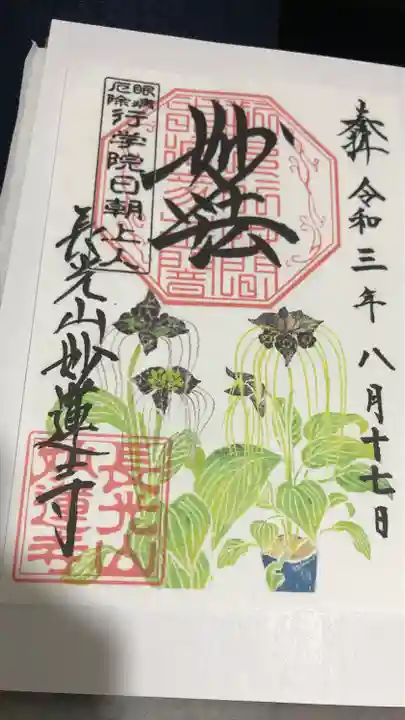 奉拝 令和三年八月十七日
妙法
眼病
厄除
行学院日朝上人
長光山妙蓮寺
長光山
妙蓮寺